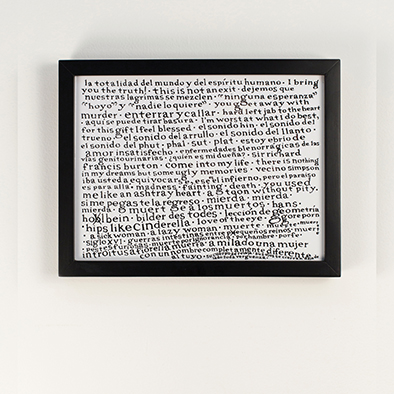 la totalidad del mundo y del espíritu humano · I bring
you the truth! · this is not an exit · dejemos que
nuestras lagrimas se mezclen · "ninguna esperanza"
"hoyo" y "nadie lo quiere" · you get away with
murder · enterrar y callar · hard left jab to the heart
· aqui se puede tirar basura · I'm worst at what i do best,
for this gift I feel blessed · el sonido hin · el sonido del
el sonido del arrullo · el sonido del llanto ·
el sonido del phut · phal · sut · plat · estoy ebrio de
amor insatisfecho · enfermedades blenorragicas de las
vias genitourinarias · ¿quien es mi dueña? · sir richard
francis burton · come into my life · there is nothing
in my dreams but some ugly memories · vecino simpson
iba usted a equivocarse, ese el infierno, pero el paraiso
es para allá · madness · fainting · death · you used
me like an ashtray heart · a gton without pity ·
si me pegas te la regreso · mierda · mierda ·
mierda · 8 · muerte a los muertos · hans
holbein · bilder des todes · lección de geometría
hips like Cinderella · love of the eye · gore porn
· a sick woman · a lazy woman · muerte · muerte · muerte
· siglo XVI · guerras intestinas entre pequeños reinos ·
pestes furiosas · muerte por ignorancia ·
introitus · a mi lado una mujer
con un hombre completamente diferente
al tuyo ·